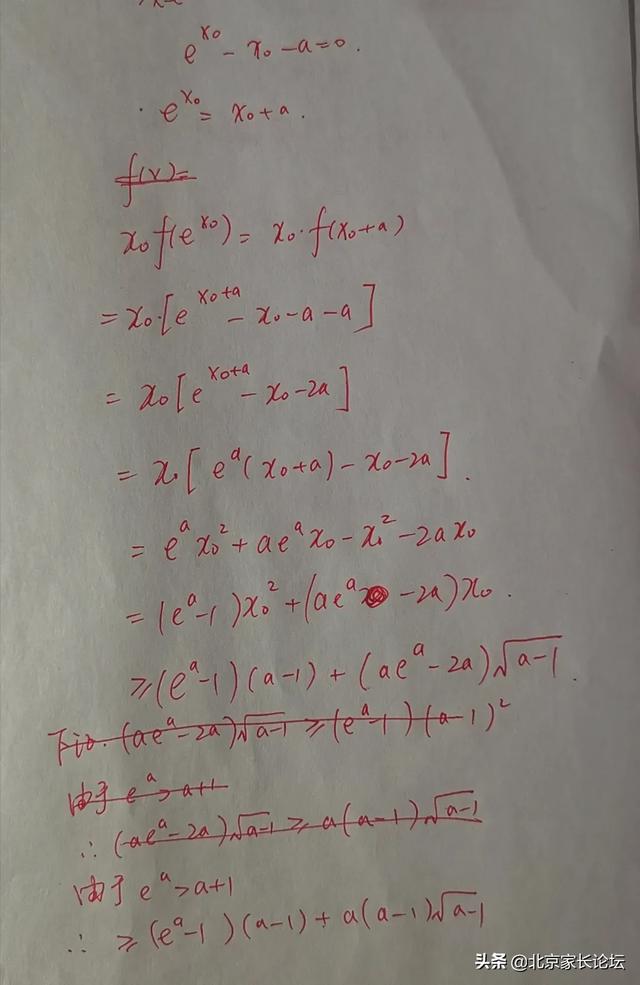 e^{x₀} - x₀ - a = 0.
· e^{x₀} = x₀ + a.
f(x)=
x₀f(e^{x₀}) = x₀·f(x₀+a)
= x₀·[e^{x₀+a} - x₀ - a - a]
= x₀[e^{x₀+a} - x₀ - 2a]
= x₀[e^a(x₀+a) - x₀ - 2a].
= e^a x₀² + ae^a x₀ - x₀² - 2ax₀
= (e^a - 1)x₀² + (ae^a - 2a)x₀.
≥ (e^a - 1)(a-1) + (ae^a - 2a)√(a-1).
(ae^a - 2a)√(a-1) ≥ (e^a - 1)(a-1)²
由于 e^a > a+1
∴ (ae^a - 2a)√(a-1) ≥ a(a-1)√(a-1)
由于 e^a > a+1
∴ ≥ (e^a - 1)(a-1) + a(a-1)√(a-1)
头条 @北京家长论坛